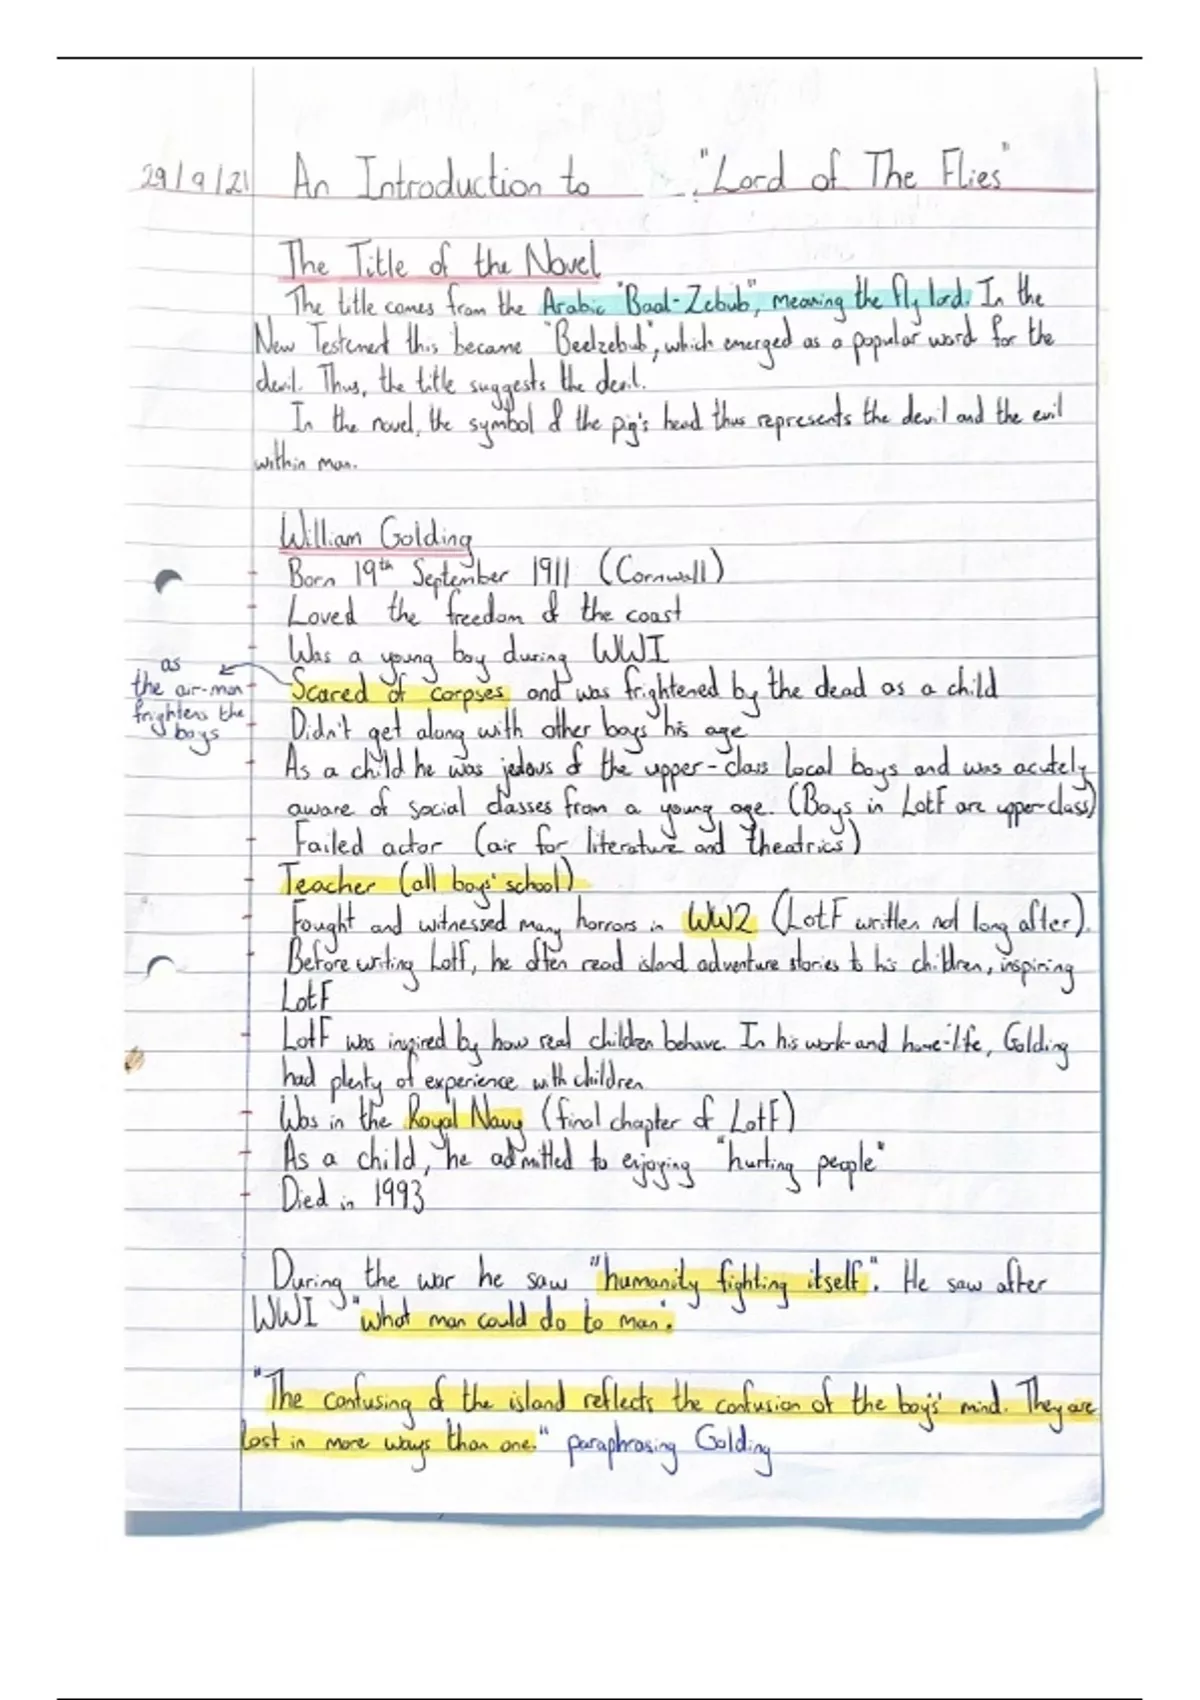 29/9/21 An Introduction to "Lord of The Flies"
The Title of the Novel
The title comes from the Arabic "Baal-Zebub", meaning the fly lord. In the
New Testement this became "Beelzebub", which emerged as a popular word for the
devil. Thus, the title suggests the devil.
In the novel, the symbol of the pig's head thus represents the devil and the evil
within man.
William Golding
Born 19th September 1911 (Cornwall)
Loved the freedom of the coast
Was a young boy during WWI
Scared of corpses and was frightened by the dead as a child
as
the air-man
frightens the
boys
Didn't get along with other boys his age
As a child he was jealous of the upper-class local boys and was acutely
aware of social classes from a young age. (Boys in LotF are upper-class)
Failed actor (air for literature and theatrics)
Teacher (all boys' school)
Fought and witnessed many horrors in WW2 (LotF written not long after).
Before writing LotF, he often read island adventure stories to his children, inspiring
LotF
LotF was inspired by how real children behave. In his work-and home-life, Golding
had plenty of experience with children.
Was in the Royal Navy (final chapter of LotF)
As a child, he admitted to enjoying "hurting people"
Died in 1993
During the war he saw "humanity fighting itself". He saw after
WWI "what man could do to man".
"The confusing of the island reflects the confusion of the boy's mind. They are
lost in more ways than one." paraphrasing Golding